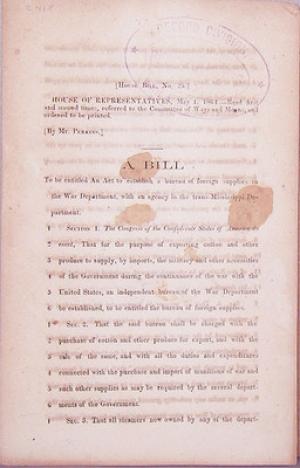 RECORD DIVISION
[House Bill, No. 25.]
HOUSE OF REPRESENTATIVES, May 4, 1864.—Read first
and second times, referred to the Committee of Ways and Means, and
ordered to be printed.
[By Mr. Perkins.]
A BILL
To be entitled An Act to establish a bureau of foreign supplies in
the War Department, with an agency in the trans-Mississippi De-
partment.
1 Section 1. The Congress of the Confederate States of America do
2 enact, That for the purpose of exporting cotton and other
3 produce to supply, by imports, the military and other necessities
4 of the Government during the continuance of the war with the
5 United States, an independent bureau of the War Department
6 be established, to be entitled the bureau of foreign supplies.
1 Sec. 2. That the said bureau shall be charged with the
2 purchase of cotton and other produce for export, and with the
3 sale of the same, and with all the duties and expenditures
4 connected with the purchase and import of munitions of war and
5 such other supplies as may be required by the several depart-
6 ments of the Government.
1 Sec. 3. That all steamers now owned by any of the depart-